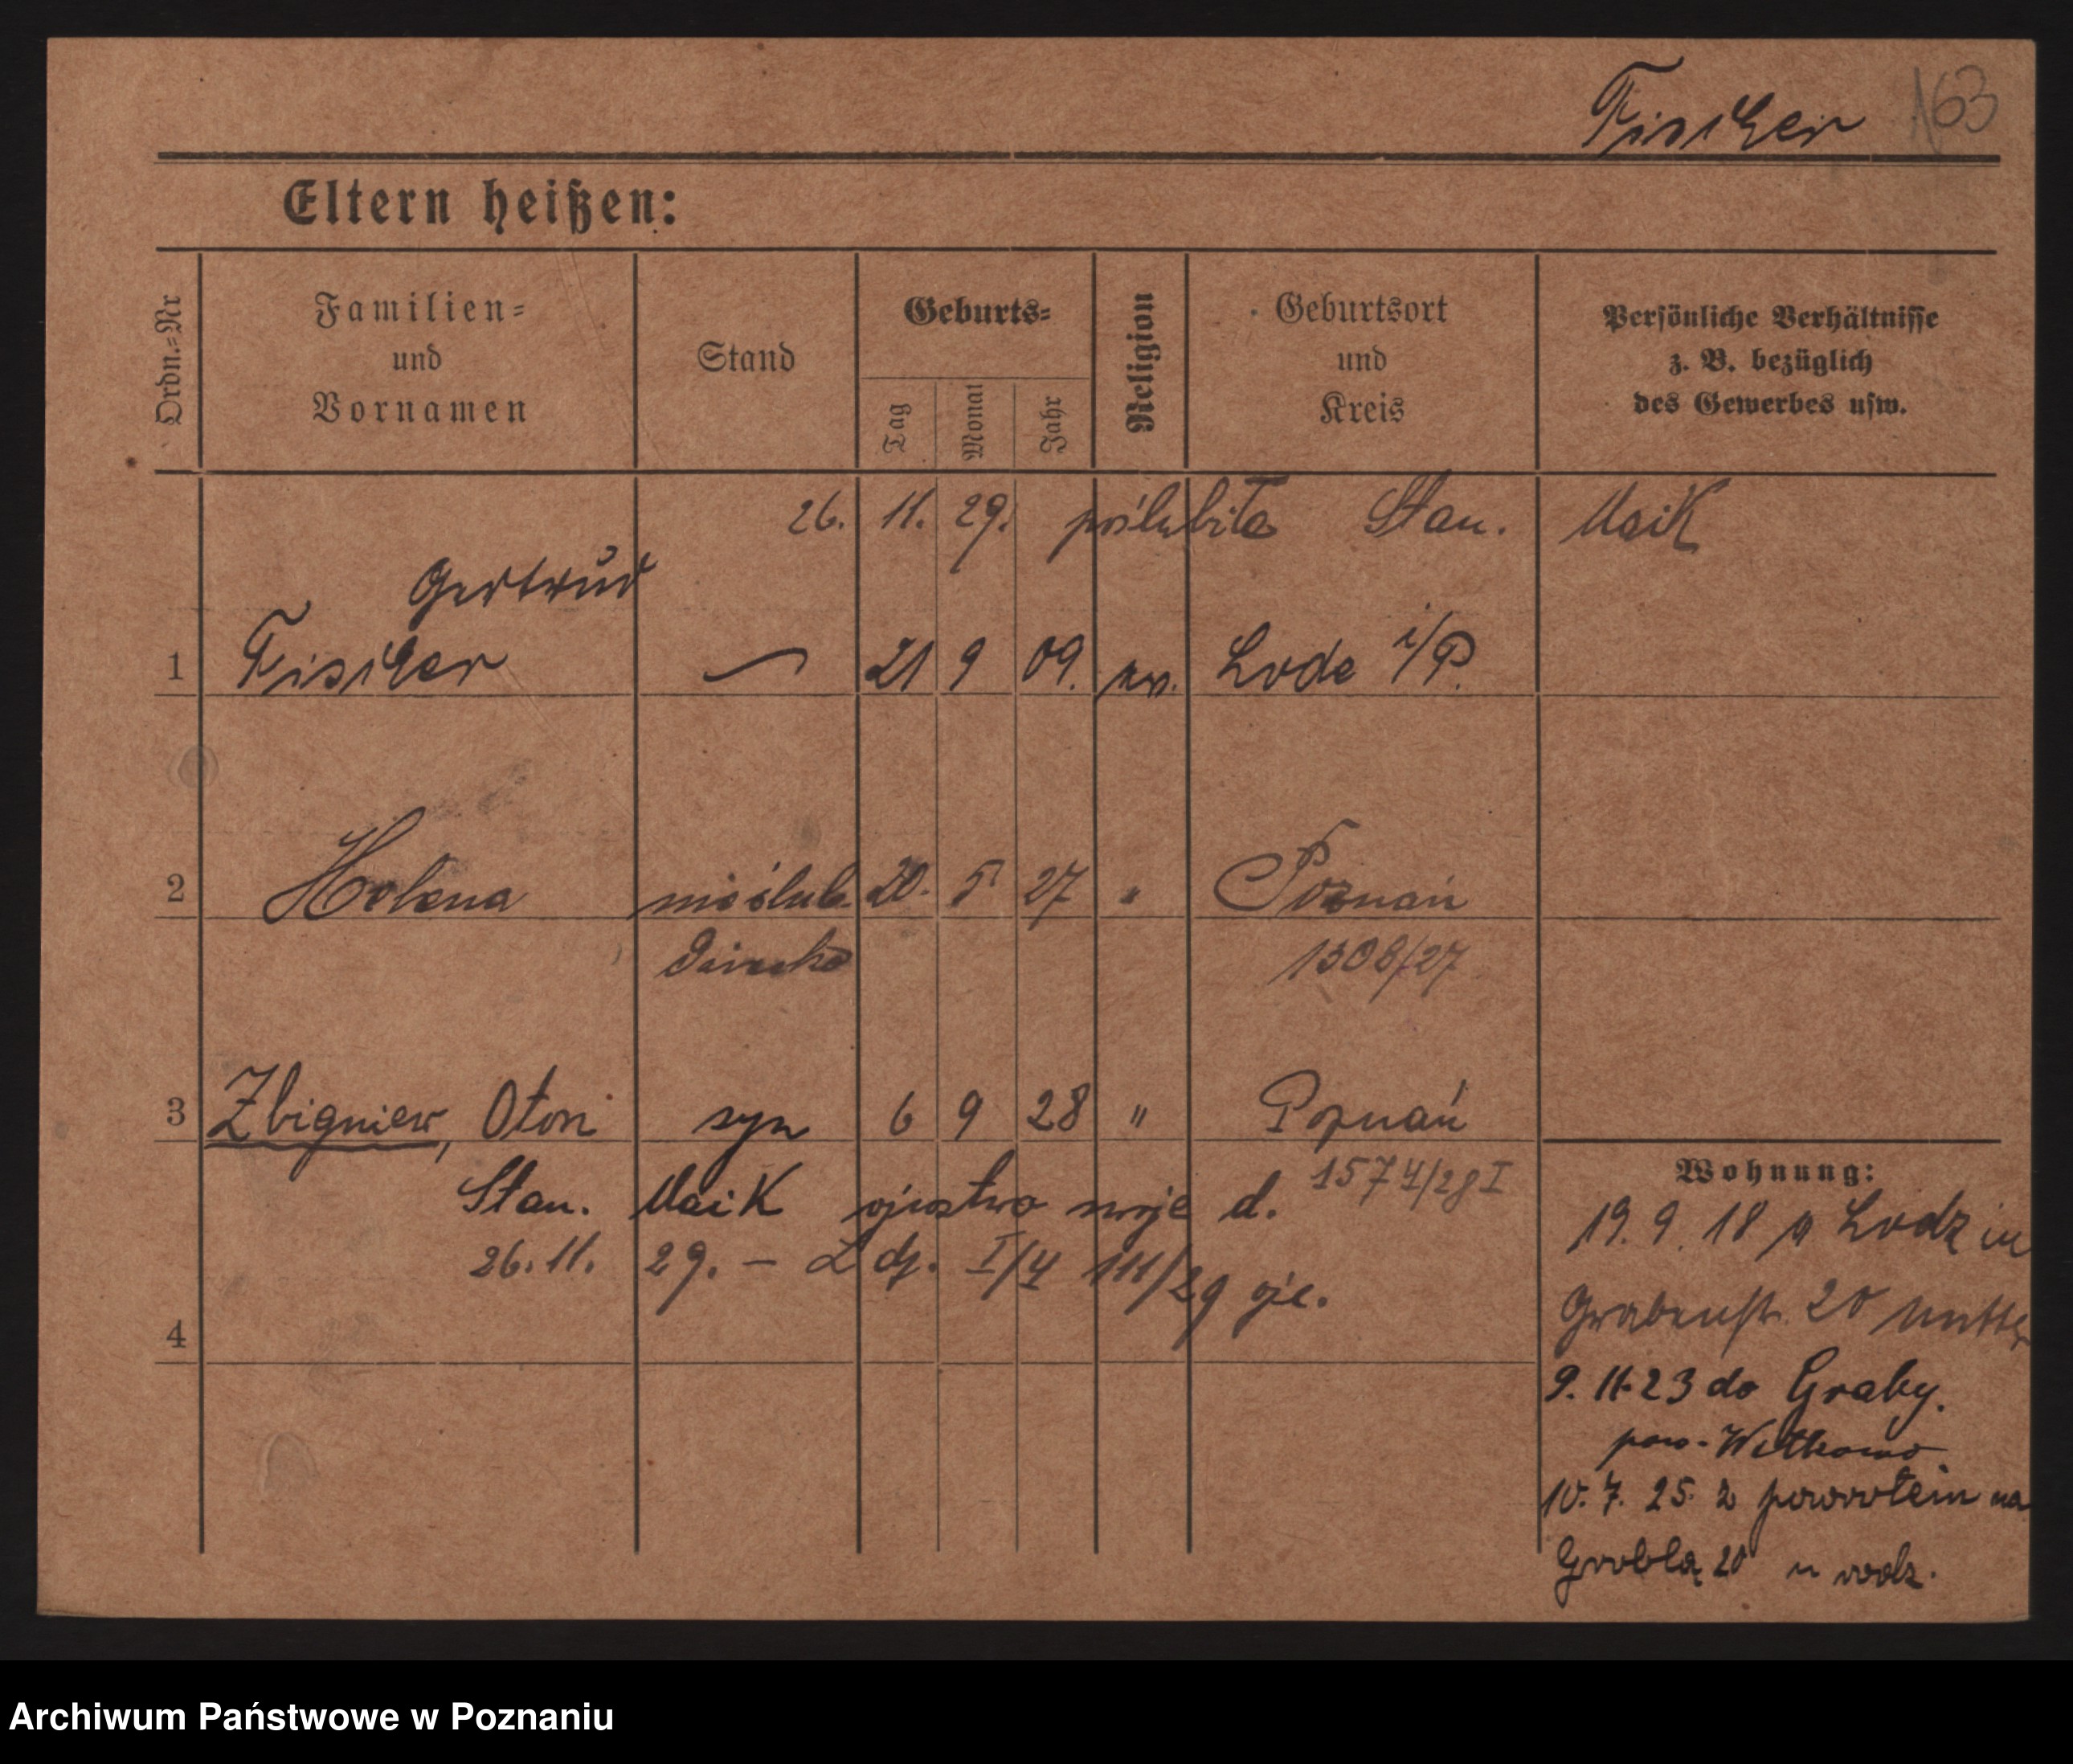 Fischer 163
Eltern heißen:
Ordn.-Nr
Familien- und Vornamen
Stand
Geburts-
Tag
Monat
Jahr
Religion
Geburtsort und Kreis
Persönliche Verhältnisse z. B. bezüglich des Gewerbes usw.
26. 11. 29. poślubiła Stan. Maik
Gertrud
1 Fischer 21 9 09. ev. Lodz i/P.
2 Helena nieślub. 20. 5 27 " Poznań
dziecko 1308/27
3 Zbigniew, Oton syn 6 9 28 " Poznań
1574/28 I
Stan. Maik ojcostwo swoje d.
26. 11. 29. – I/4 111/29
4
Wohnung:
19. 9. 18 Lodz in
Grabenstr. 20 Mutter
9. 11. 23 do Graby.
pow. Witkowo
10. 7. 25. z powrotem na
Groblą 20 u rodz.
Archiwum Państwowe w Poznaniu